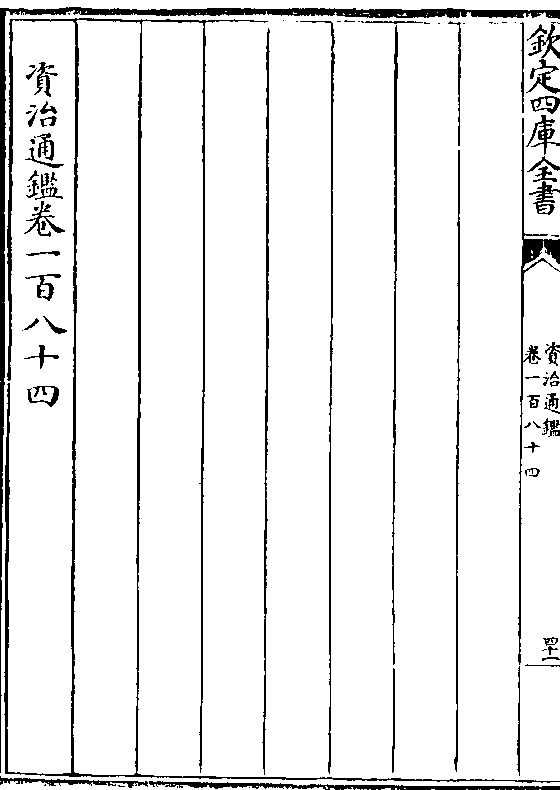 欽定四庫全書
資治通鑑
卷一百八十四
四十一
資治通鑑卷一百八十四